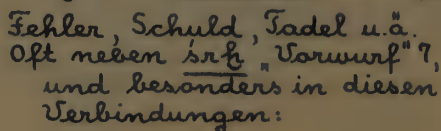 Fehler, Schuld, Tadel u.ä.
Oft neben śrḫ „Vorwurf“?,
und besonders in diesen
Verbindungen: